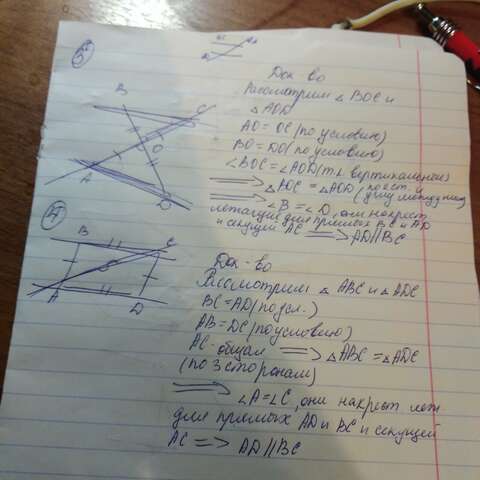 3
B
C
O
A
D
Док-во
Рассмотрим △ BOC и
△ AOD
AO = OC (по условию)
BO = DO (по условию)
∠BOC = ∠AOD (т.к вертикальные)
⟹ △BOC = △AOD (по 2 ст. и углу между ними)
⟹ ∠B = ∠D, они накрест
лежащие для прямых BC и AD
и секущей AC ⟹ AD || BC
4
B
C
A
D
Док-во
Рассмотрим △ ABC и △ ADC
BC = AD (по усл.)
AB = DC (по условию)
AC - общая ⟹ △ABC = △ADC
(по 3 сторонам)
⟹ ∠A = ∠C, они накрест леж
для прямых AD и BC и секущей
AC => AD || BC